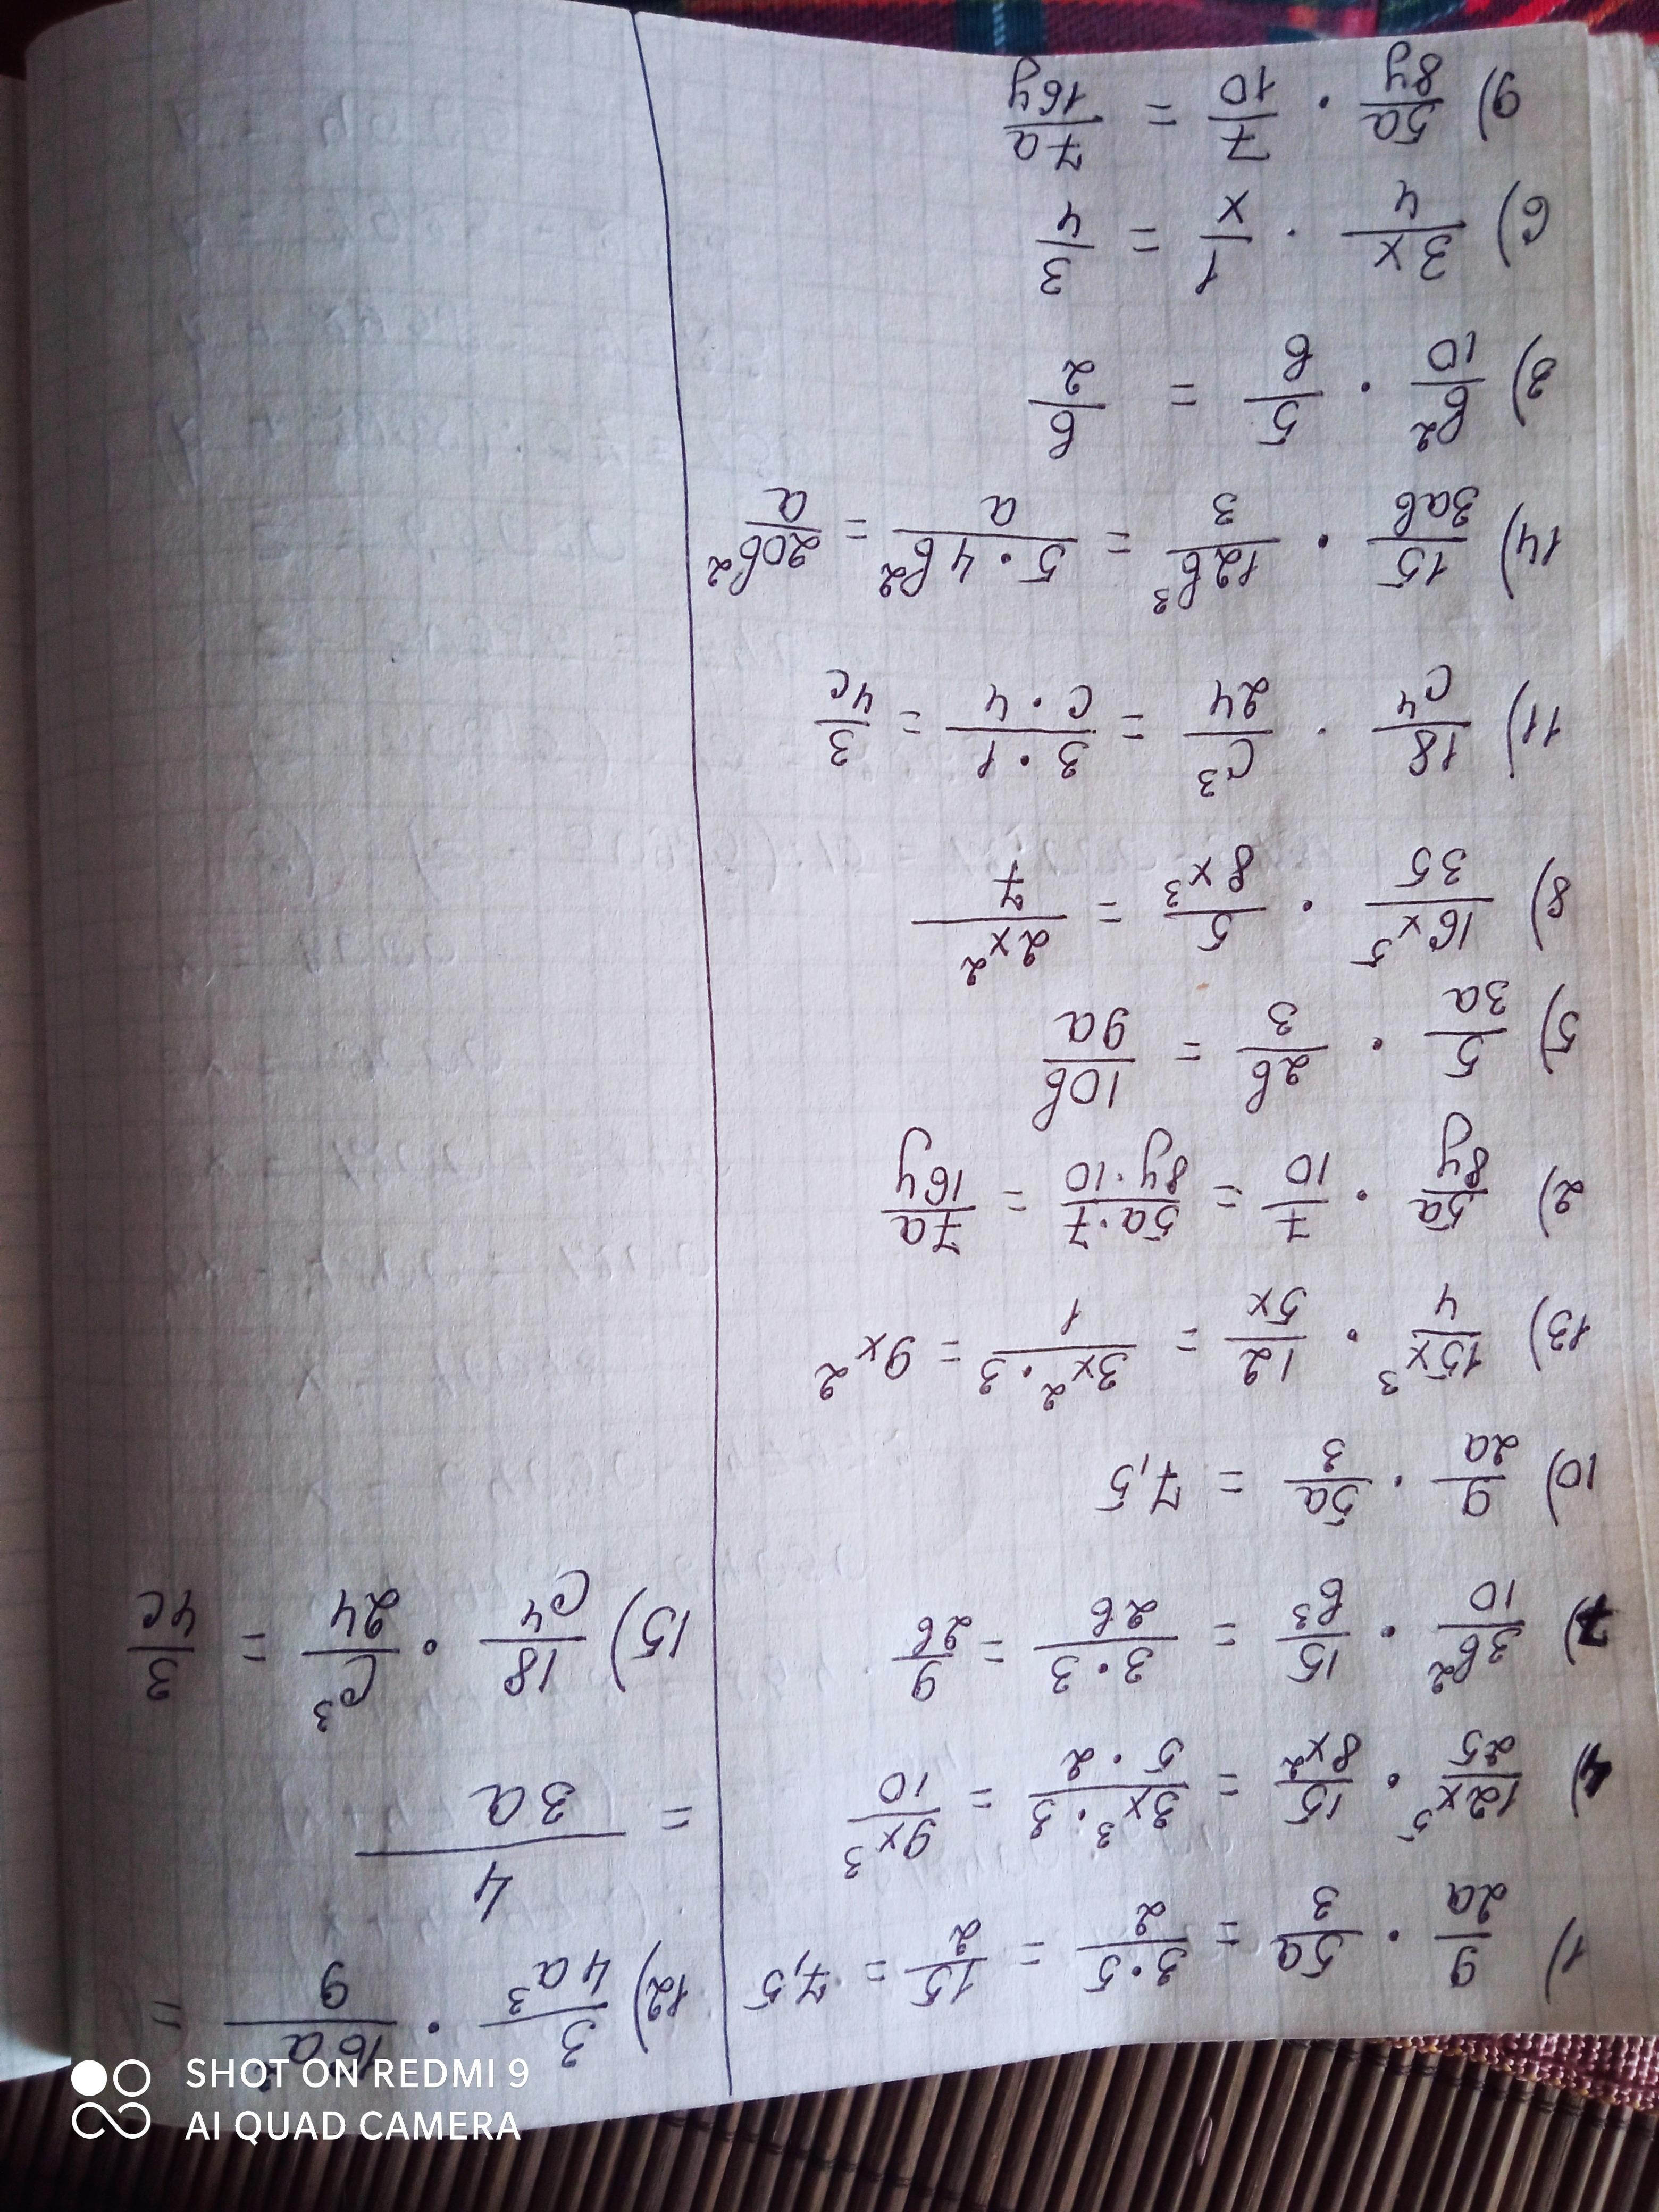 1) 9/2a · 5a/3 = 3·5/2 = 15/2 = 7,5
4) 12x⁵/25 · 15/8x² = 3x³·3/5·2 = 9x³/10
7) 3b²/10 · 15/b³ = 3·3/2b = 9/2b
10) 9/2a · 5a/3 = 7,5
13) 15x³/4 · 12/5x = 3x²·3/1 = 9x²
2) 5a/8y · 7/10 = 5a·7/8y·10 = 7a/16y
5) 5/3a · 2b/3 = 10b/9a
8) 16x⁵/35 · 5/8x³ = 2x²/7
11) 18/c⁴ · c³/24 = 3·1/c·4 = 3/4c
14) 15/3ab · 12b³/3 = 5·4b²/a = 20b²/a
3) b²/10 · 5/b = b/2
6) 3x/4 · 1/x = 3/4
9) 5a/8y · 7/10 = 7a/16y
12) 3/4a³ · 16a²/9 =
= 4/3a
15) 18/c⁴ · c³/24 = 3/4c
SHOT ON REDMI 9
AI QUAD CAMERA